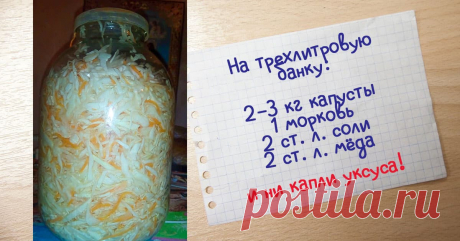 На трехлитровую
банку!
2-3 кг капусты
1 морковь
2 ст. л. соли
2 ст. л. мёда
И ни капли уксуса!
postila.ru